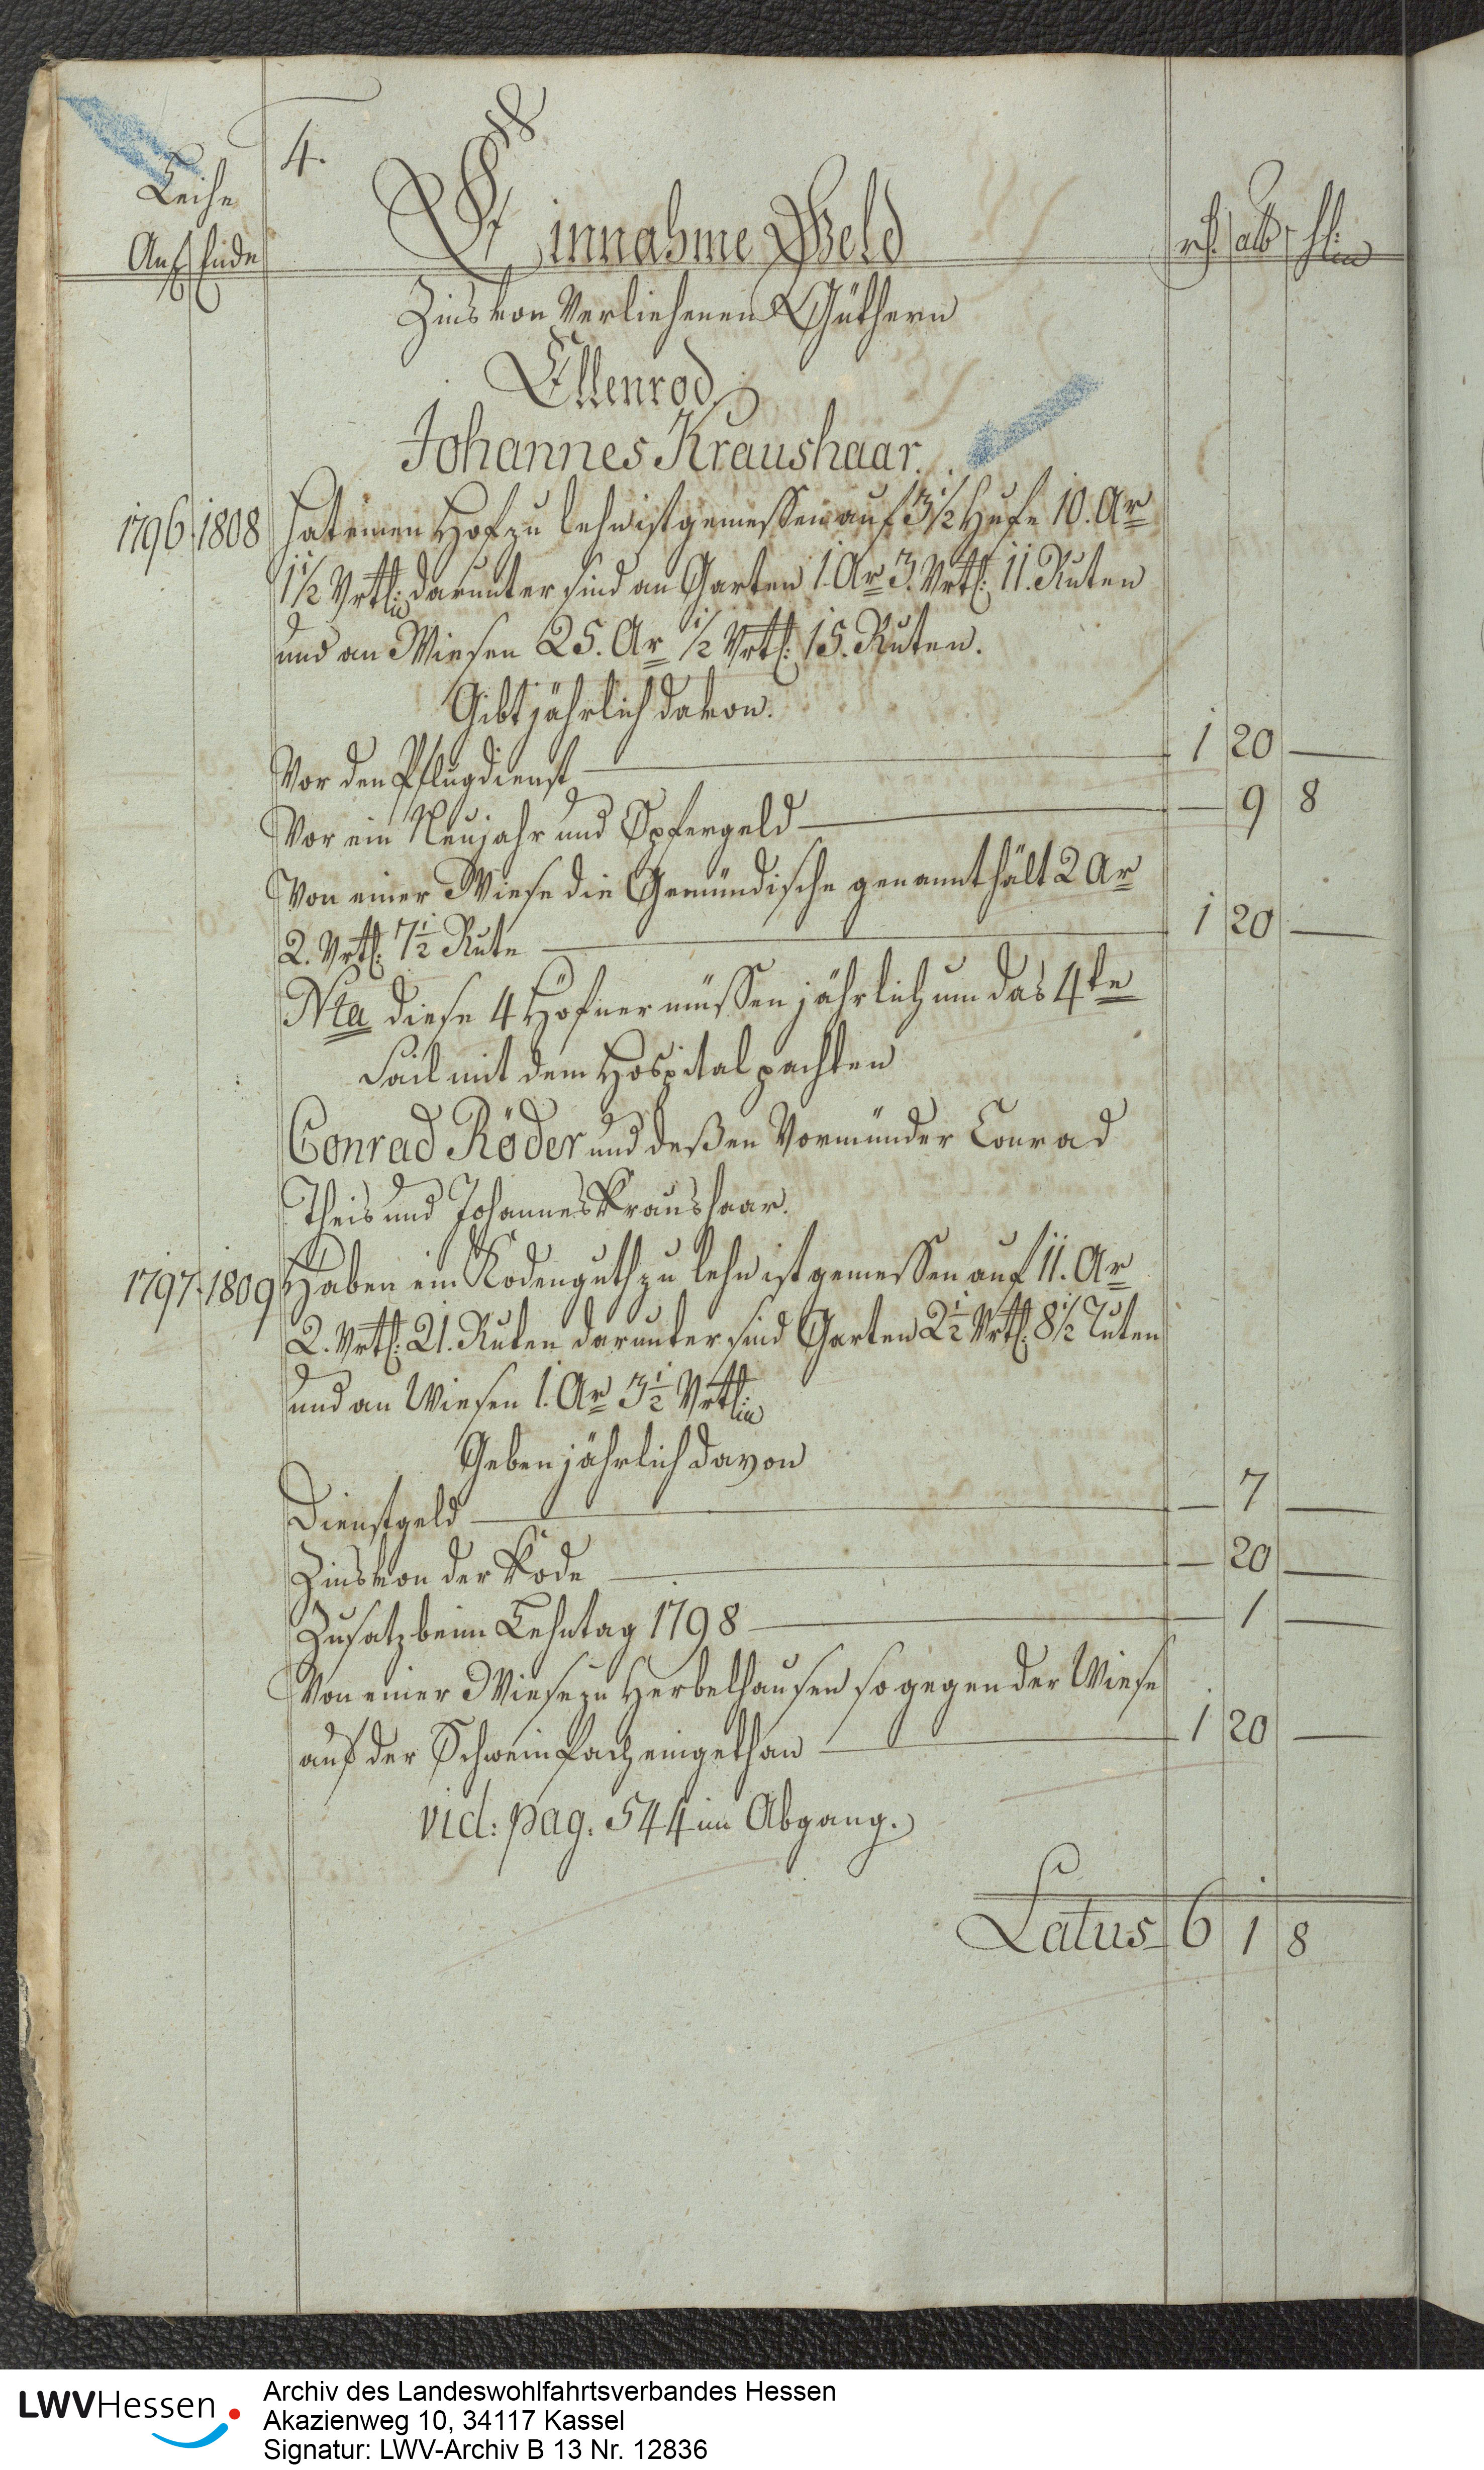 4.
Leihe
Anf Ende
Einnahme Geld
rh. alb hlr
Zins von Verliehenen Güthern
Ellenrod
Johannes Kraushaar.
1796. 1808 hat einen Hof zu lehn ist gemessen auf 3 1/2 Hufe 10. Ar
1 1/2 Vrtl: darunter sind an Garten 1. Ar 3. Vrtl: 11. Ruten
und an Wiesen 25. Ar 1/2 Vrtl: 15. Ruten.
Gibt jährlich davon.
Vor den Pflugdienst — 1 20 —
Vor ein Neujahr und Opfergeld — — 9 8
Von einer Wiese die Gemündische genannt hält 2 Ar
2. Vrtl: 7 1/2 Rute — 1 20 —
Nta diese 4 Höfner müssen jährlich um das 4te
Tail mit dem Hospital pachten
Conrad Röder und deßen Vormünder Conrad
Theis und Johannes Kraushaar.
1797. 1809 Haben ein Kodenguth zu lehn ist gemessen auf 11. Ar
2. Vrtl: 21. Ruten darunter sind Garten 2 1/2 Vrtl: 8 1/2 Ruten
und an Wiesen 1. Ar 3 1/2 Vrtl:
Geben jährlich davon
Dienstgeld — — 7 —
Zins von der Köde — — 20 —
Zusatz beim Lehntag 1798 — — 1 —
Von einer Wiese zu Herbelhausen so gegen der Wiese
auf der Schweinfach eingethan — 1 20 —
vid: pag: 544 im Abgang.
Latus 6 1 8
LWVHessen
Archiv des Landeswohlfahrtsverbandes Hessen
Akazienweg 10, 34117 Kassel
Signatur: LWV-Archiv B 13 Nr. 12836